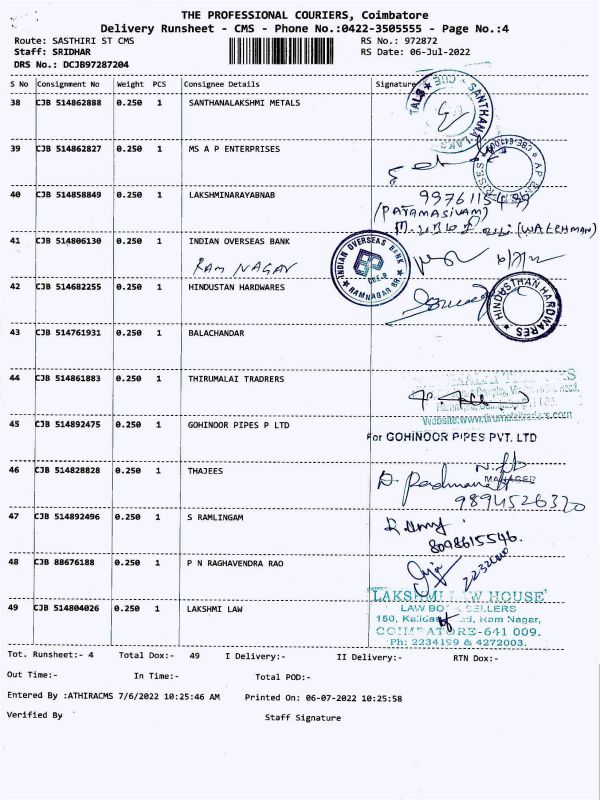 THE PROFESSIONAL COURIERS, Coimbatore
Delivery Runsheet - CMS - Phone No.:0422-3505555 - Page No.:4
Route: SASTHIRI ST CMS RS No.: 972872
Staff: SRIDHAR RS Date: 06-Jul-2022
DRS No.: DCJB97287204
S No Consignment No Weight PCS Consignee Details Signature
38 CJB 514862888 0.250 1 SANTHANALAKSHMI METALS
39 CJB 514862827 0.250 1 MS A P ENTERPRISES
40 CJB 514858849 0.250 1 LAKSHMINARAYABNAB
(PARAMASIVAM)
(WATCHMAN)
41 CJB 514806130 0.250 1 INDIAN OVERSEAS BANK
RAM NAGAR
INDIAN OVERSEAS BANK
RAMNAGAR BR
42 CJB 514682255 0.250 1 HINDUSTAN HARDWARES
HINDUSTHAN HARDWARES
43 CJB 514761931 0.250 1 BALACHANDAR
44 CJB 514861883 0.250 1 THIRUMALAI TRADRERS
Website:www.tirumalaitraders.com
45 CJB 514892475 0.250 1 GOHINOOR PIPES P LTD
For GOHINOOR PIPES PVT. LTD
MANAGER
46 CJB 514828828 0.250 1 THAJEES
9894526320
47 CJB 514892496 0.250 1 S RAMLINGAM
8098615546.
48 CJB 88676188 0.250 1 P N RAGHAVENDRA RAO
2232000
49 CJB 514804026 0.250 1 LAKSHMI LAW
'LAKSHMI LAW HOUSE'
LAW BOOK SELLERS
Ram Nager,
COIMBATORE-641 009.
Ph: 2234199 & 4272003.
Tot. Runsheet:- 4 Total Dox:- 49 I Delivery:- II Delivery:- RTN Dox:-
Out Time:- In Time:- Total POD:-
Entered By :ATHIRACMS 7/6/2022 10:25:46 AM Printed On: 06-07-2022 10:25:58
Verified By Staff Signature